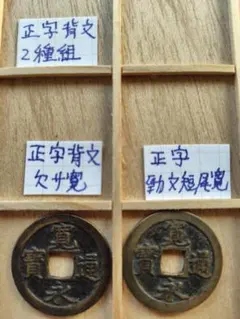 正字背文
2種組
正字背文
欠サ寛
正字
勁文短尾寛
寛
寳通
永
寛
寳通
永